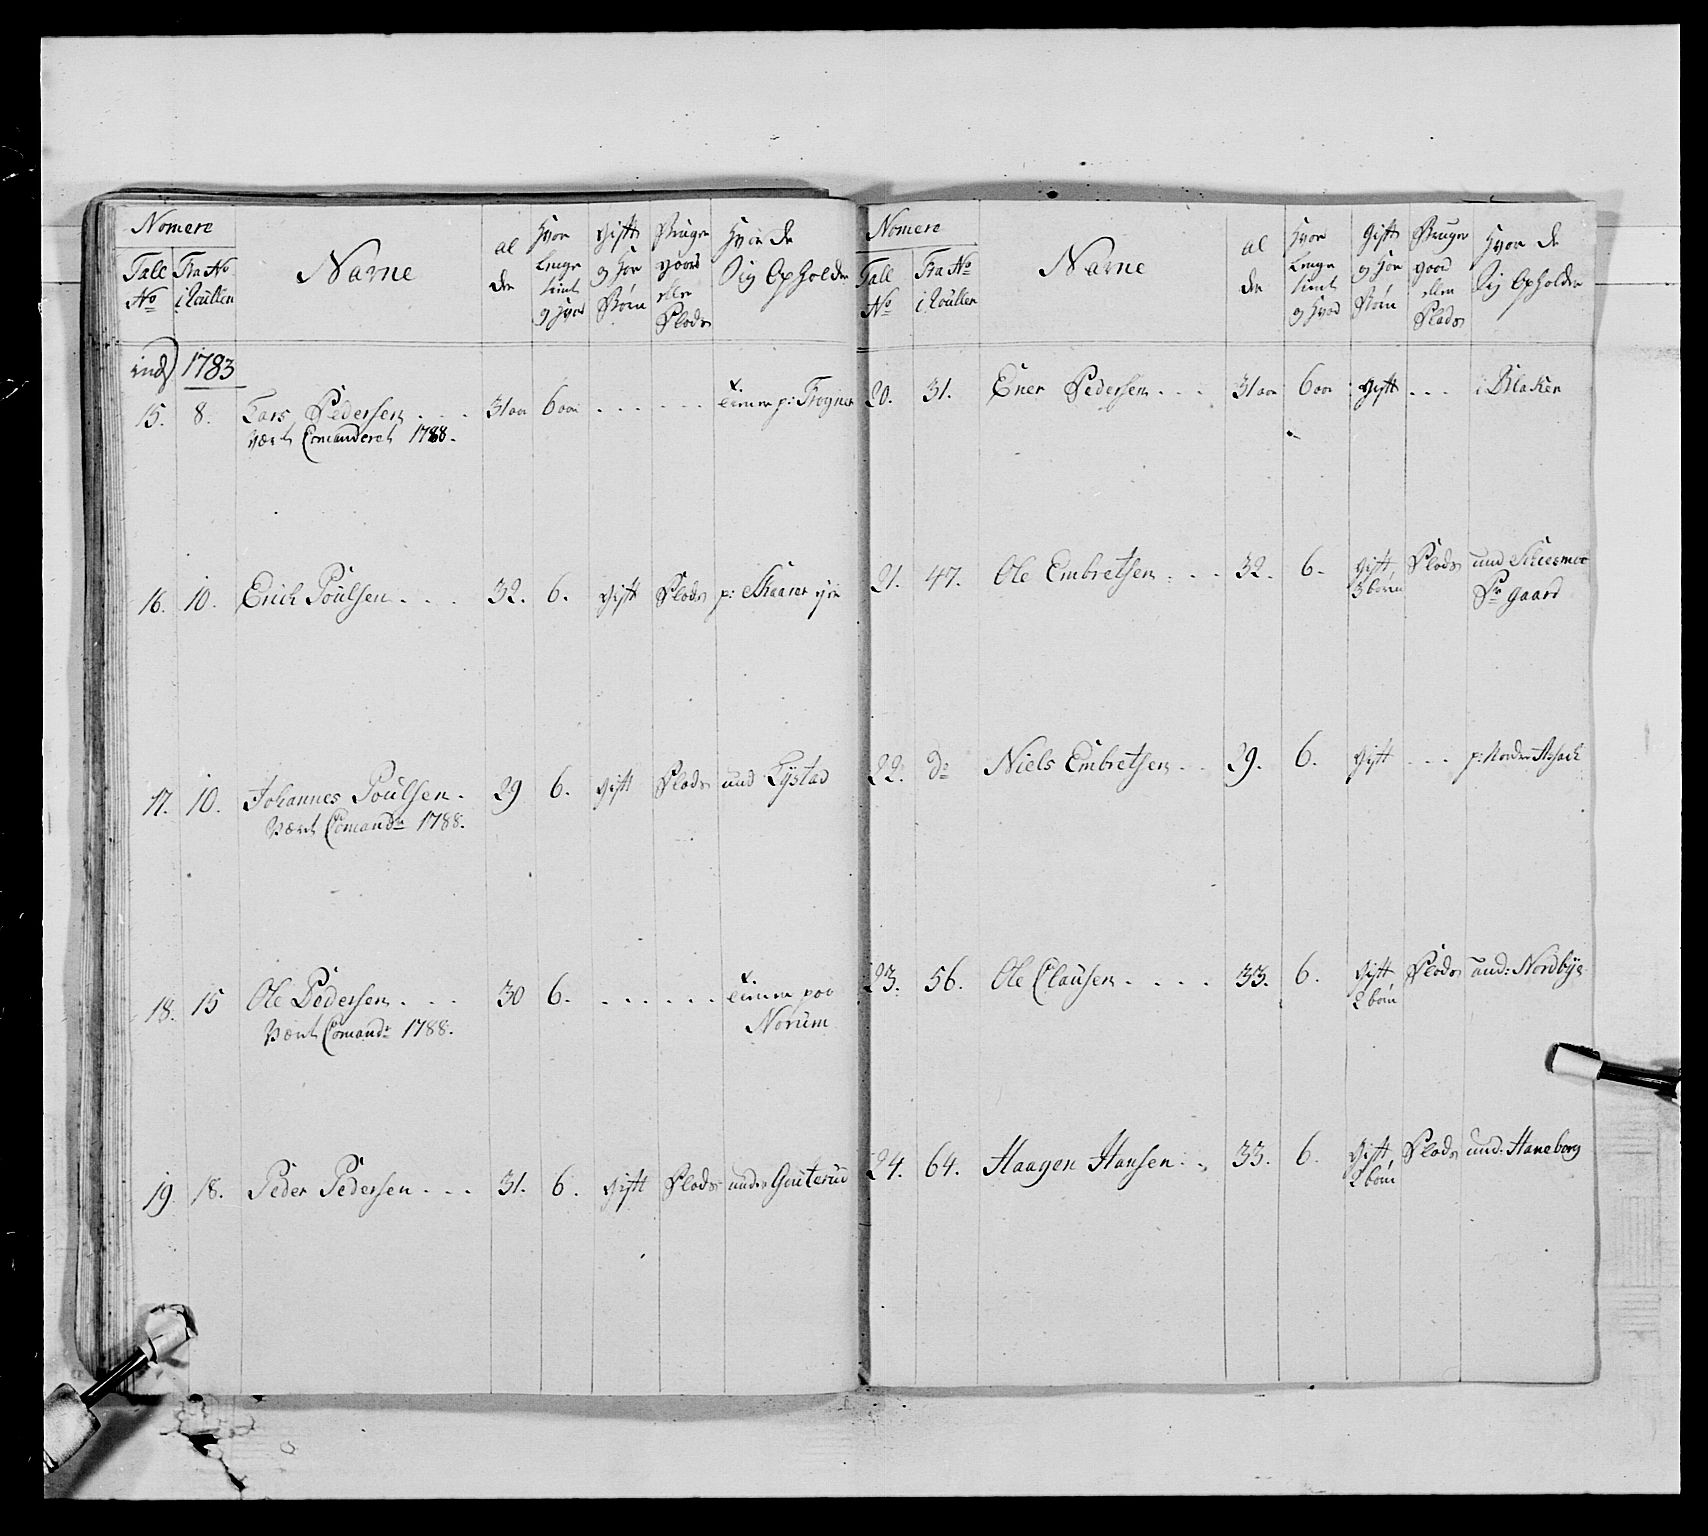 Nomere
Tall No
Fra No i Roullen
Navne
al der
Hvor Lenge tient og Hvad
Gift og Hor Børn
Bruger gaard eller Plads
Hvor de Sig Opholder
ind 1783
15. 8. Lars Pedersen . . . 31 aar 6 aar . . . . . . tienner p: Frogner
vært Comanderet 1788.
16. 10. Erich Poulsen . . . 32. 6. Gift Plads p: Skaarer
17. 10. Johannes Poulsen . 29 6. Gift Plads und Lystad
Vært Comandr 1788.
18. 15 Ole Pedersen . . . 30 6. . . . . . . tienner paa
Norum
Vært Comandr 1788.
19. 18. Peder Pedersen . . . 31. 6. Gift Plads under Gouterud
Nomere
Tall No
Fra No i Roullen
Navne
al der
Hvor Lenge tient og Hvad
Gift og Hor Børn
Bruger gaard eller Plads
Hvor de Sig Opholder
20. 31. Ener Pedersen . . . 31 aar 6 aar Gift . . . i Blaker
21. 47. Ole Embretsen . . . 32. 6. Gift Plads und
3 børn Pr gaard
22. do Niels Embretsen . . 29. 6. Gift . . . p: Nordre
23. 56. Ole Clausen . . . . 33. 6. Gift Plads und: Nordbye
2 børn
24. 64. Haagen Hansen . . 33. 6. Gift Plads und: Haneborg
2 børn